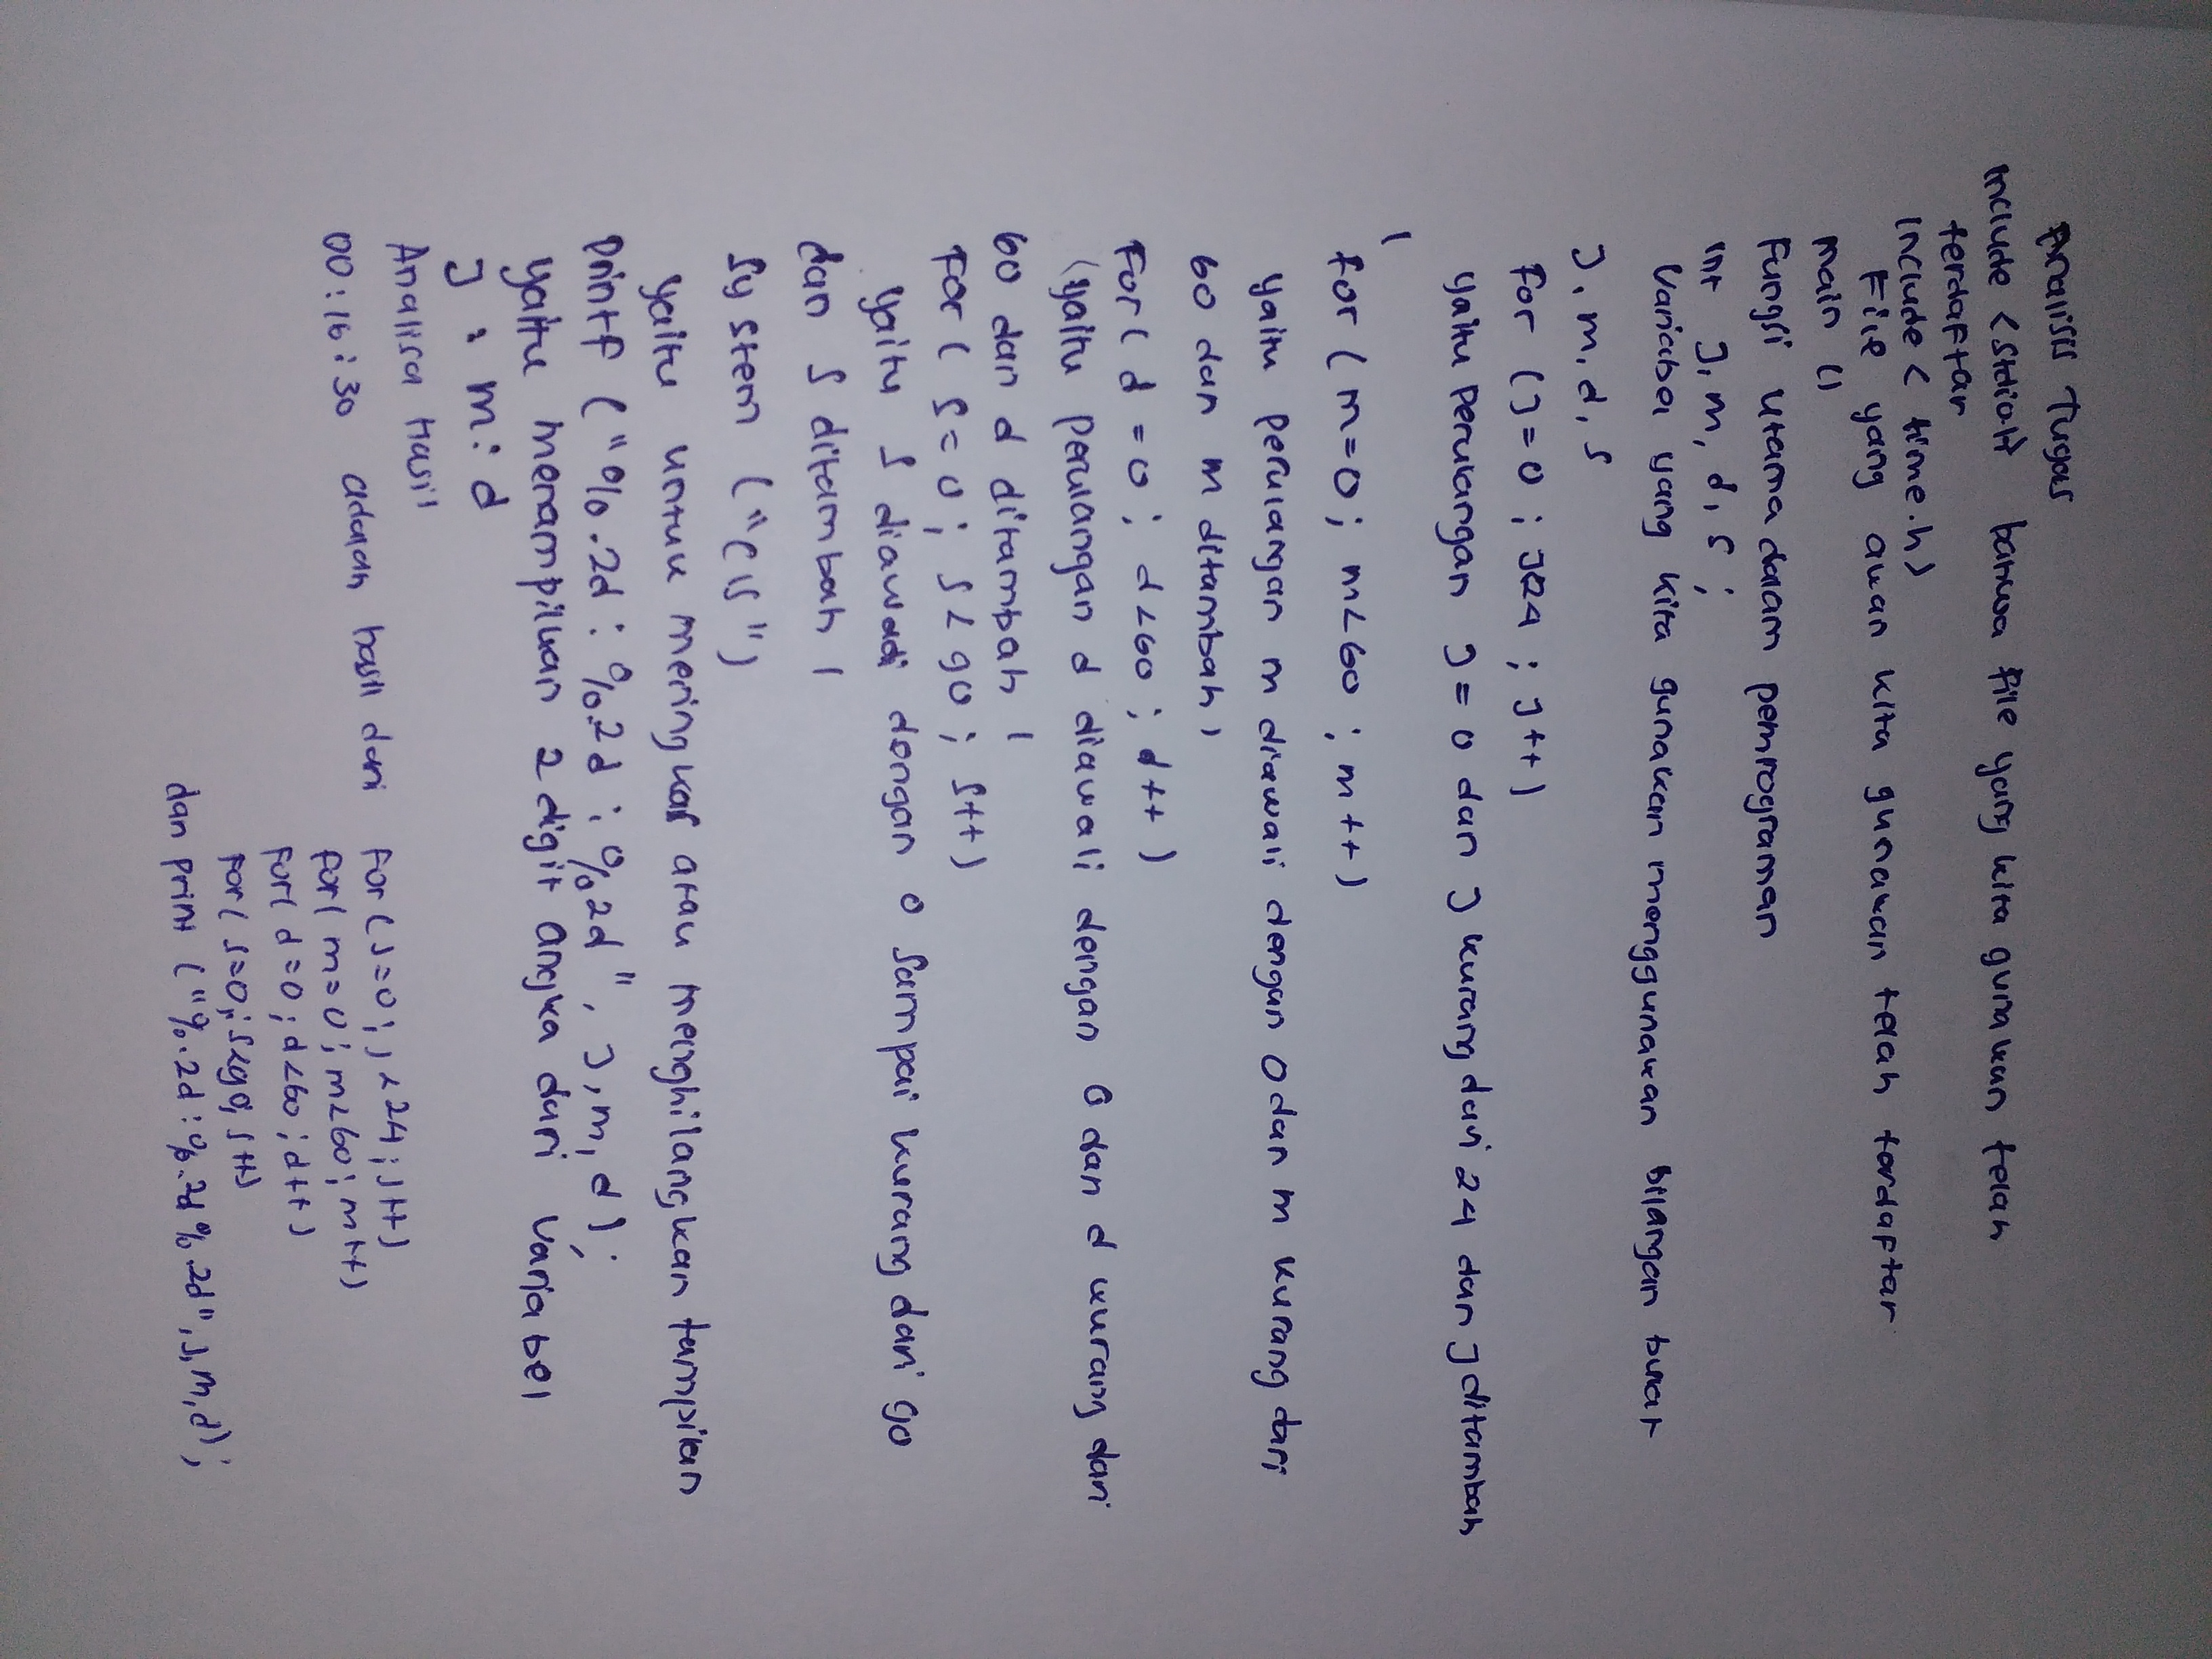 Analisis Tugas
Include <Stdio.h bahwa file yang kita gunakan telah
terdaftar
Include < time.h)
File yang akan kita gunakan telah terdaftar
main ()
Fungsi utama dalam pemrograman
Int J, m, d, s ;
Variabel yang kita gunakan menggunakan bilangan bulat
J, m, d, s
For (J=0 ; J<24 ; J++)
yaitu perulangan J=0 dan J kurang dari 24 dan J ditambah
1
for (m=0 ; m<60 ; m++)
yaitu perulangan m diawali dengan 0 dan m kurang dari
60 dan m ditambah 1
For (d=0 ; d<60 ; d++)
(yaitu perulangan d diawali dengan 0 dan d kurang dari
60 dan d ditambah 1
For (s=0 ; s<90 ; s++)
yaitu s diawali dengan 0 sampai kurang dari 90
dan s ditambah 1
System ("cls")
yaitu untuk meringkas atau menghilangkan tampilan
Printf ("%.2d : %.2d : %.2d", J, m, d) ;
yaitu menampilkan 2 digit angka dari variabel
J : m : d
Analisa Hasil
00:16:30 adalah hasil dari For (J=0 ; J<24 ; J++)
For( m=0 ; m<60 ; m++)
For( d=0 ; d<60 ; d++)
For( s=0 ; s<90, s++)
dan print ("%.2d : %.2d %.2d", J, m, d) ;